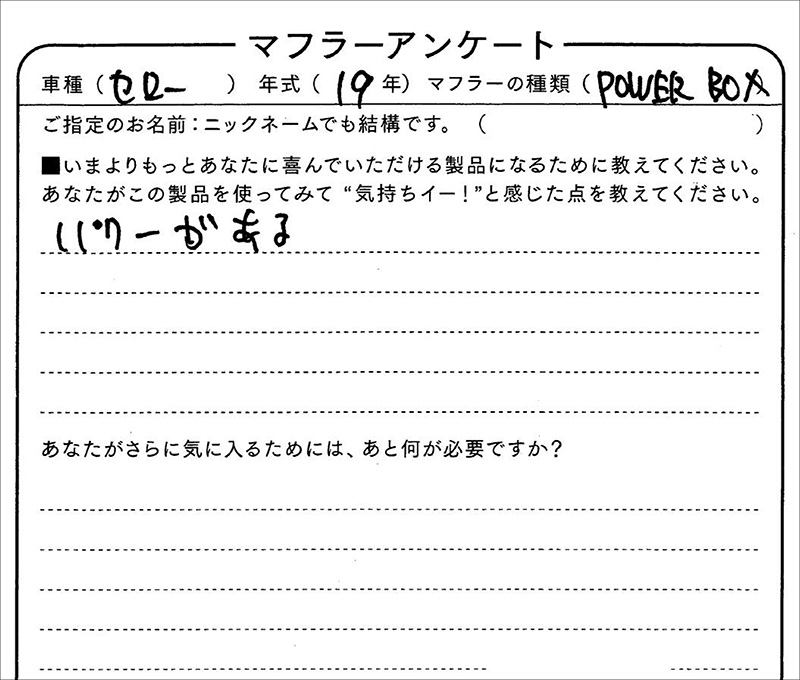 マフラーアンケート
車種（セロー　　） 年式（ 19 年）マフラーの種類（POWER BOX
ご指定のお名前：ニックネームでも結構です。（　　　　　　）
■いまよりもっとあなたに喜んでいただける製品になるために教えてください。
あなたがこの製品を使ってみて“気持ちイー！”と感じた点を教えてください。
パワーがある
あなたがさらに気に入るためには、あと何が必要ですか？